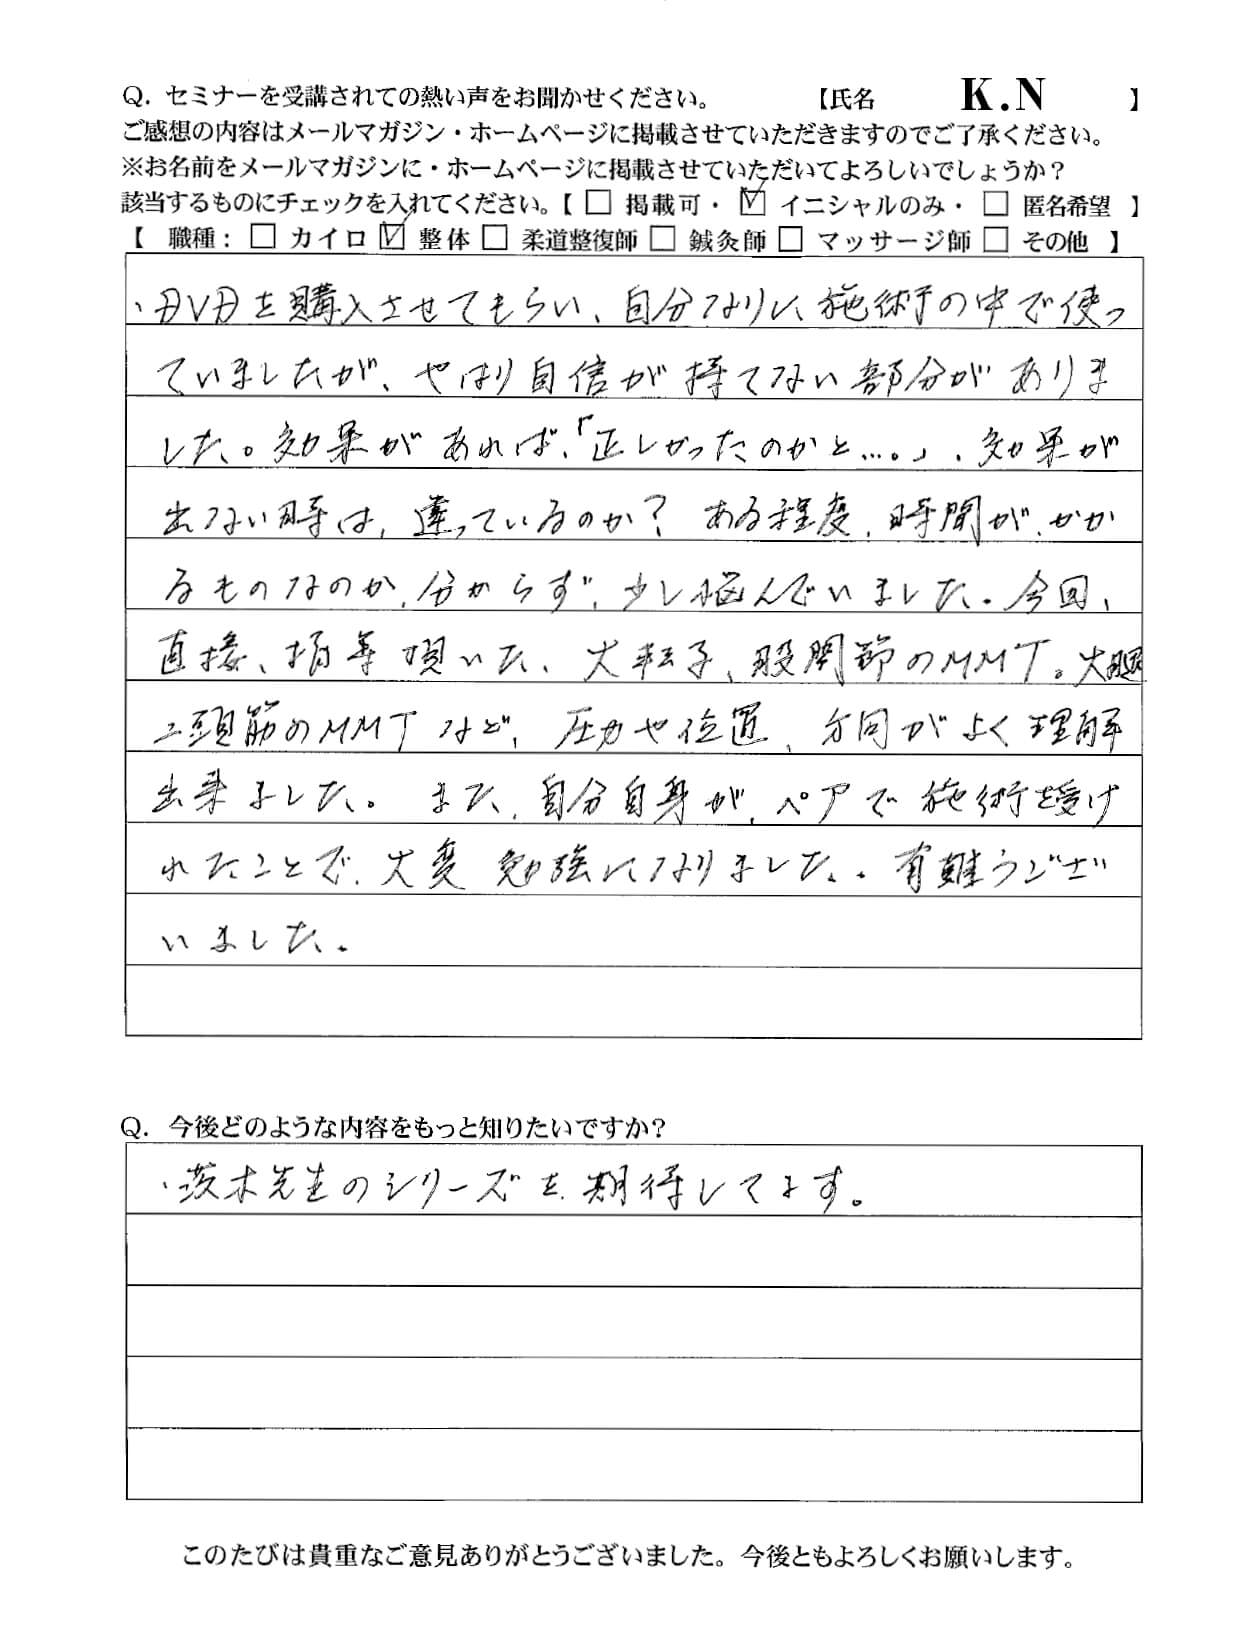 Q. セミナーを受講されての熱い声をお聞かせください。 【氏名 K.N 】
ご感想の内容はメールマガジン・ホームページに掲載させていただきますのでご了承ください。
※お名前をメールマガジンに・ホームページに掲載させていただいてよろしいでしょうか？
該当するものにチェックを入れてください。【 □ 掲載可・ ☑ イニシャルのみ・ □ 匿名希望 】
【 職種： □ カイロ ☑ 整体 □ 柔道整復師 □ 鍼灸師 □ マッサージ師 □ その他 】
・DVDを購入させてもらい、自分なりに施術の中で使っ
ていましたが、やはり自信が持てない部分がありま
した。効果があれば、「正しかったのかと…。」、効果が
出ない時は、違っているのか？ ある程度、時間が、かか
るものなのか、分からず、少し悩んでいました。今回、
直接、指導頂いた、大転子、股関節のMMT。大腿
二頭筋のMMTなど、圧力や位置、方向がよく理解
出来ました。 また、自分自身が、ペアで施術を受け
れたことで、大変勉強になりました。有難うござ
いました。
Q. 今後どのような内容をもっと知りたいですか？
・茨木先生のシリーズを期待してます。
このたびは貴重なご意見ありがとうございました。今後ともよろしくお願いします。